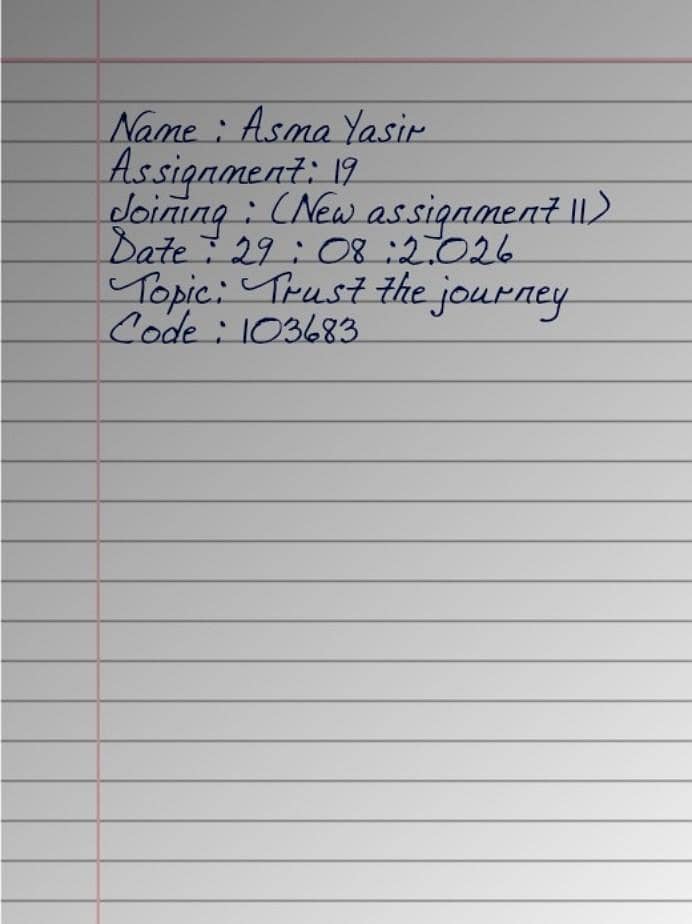 Name : Asma Yasir
Assignment: 19
Joining : (New assignment 11)
Date : 29 : 08 :2.026
Topic: Trust the journey
Code : 103683